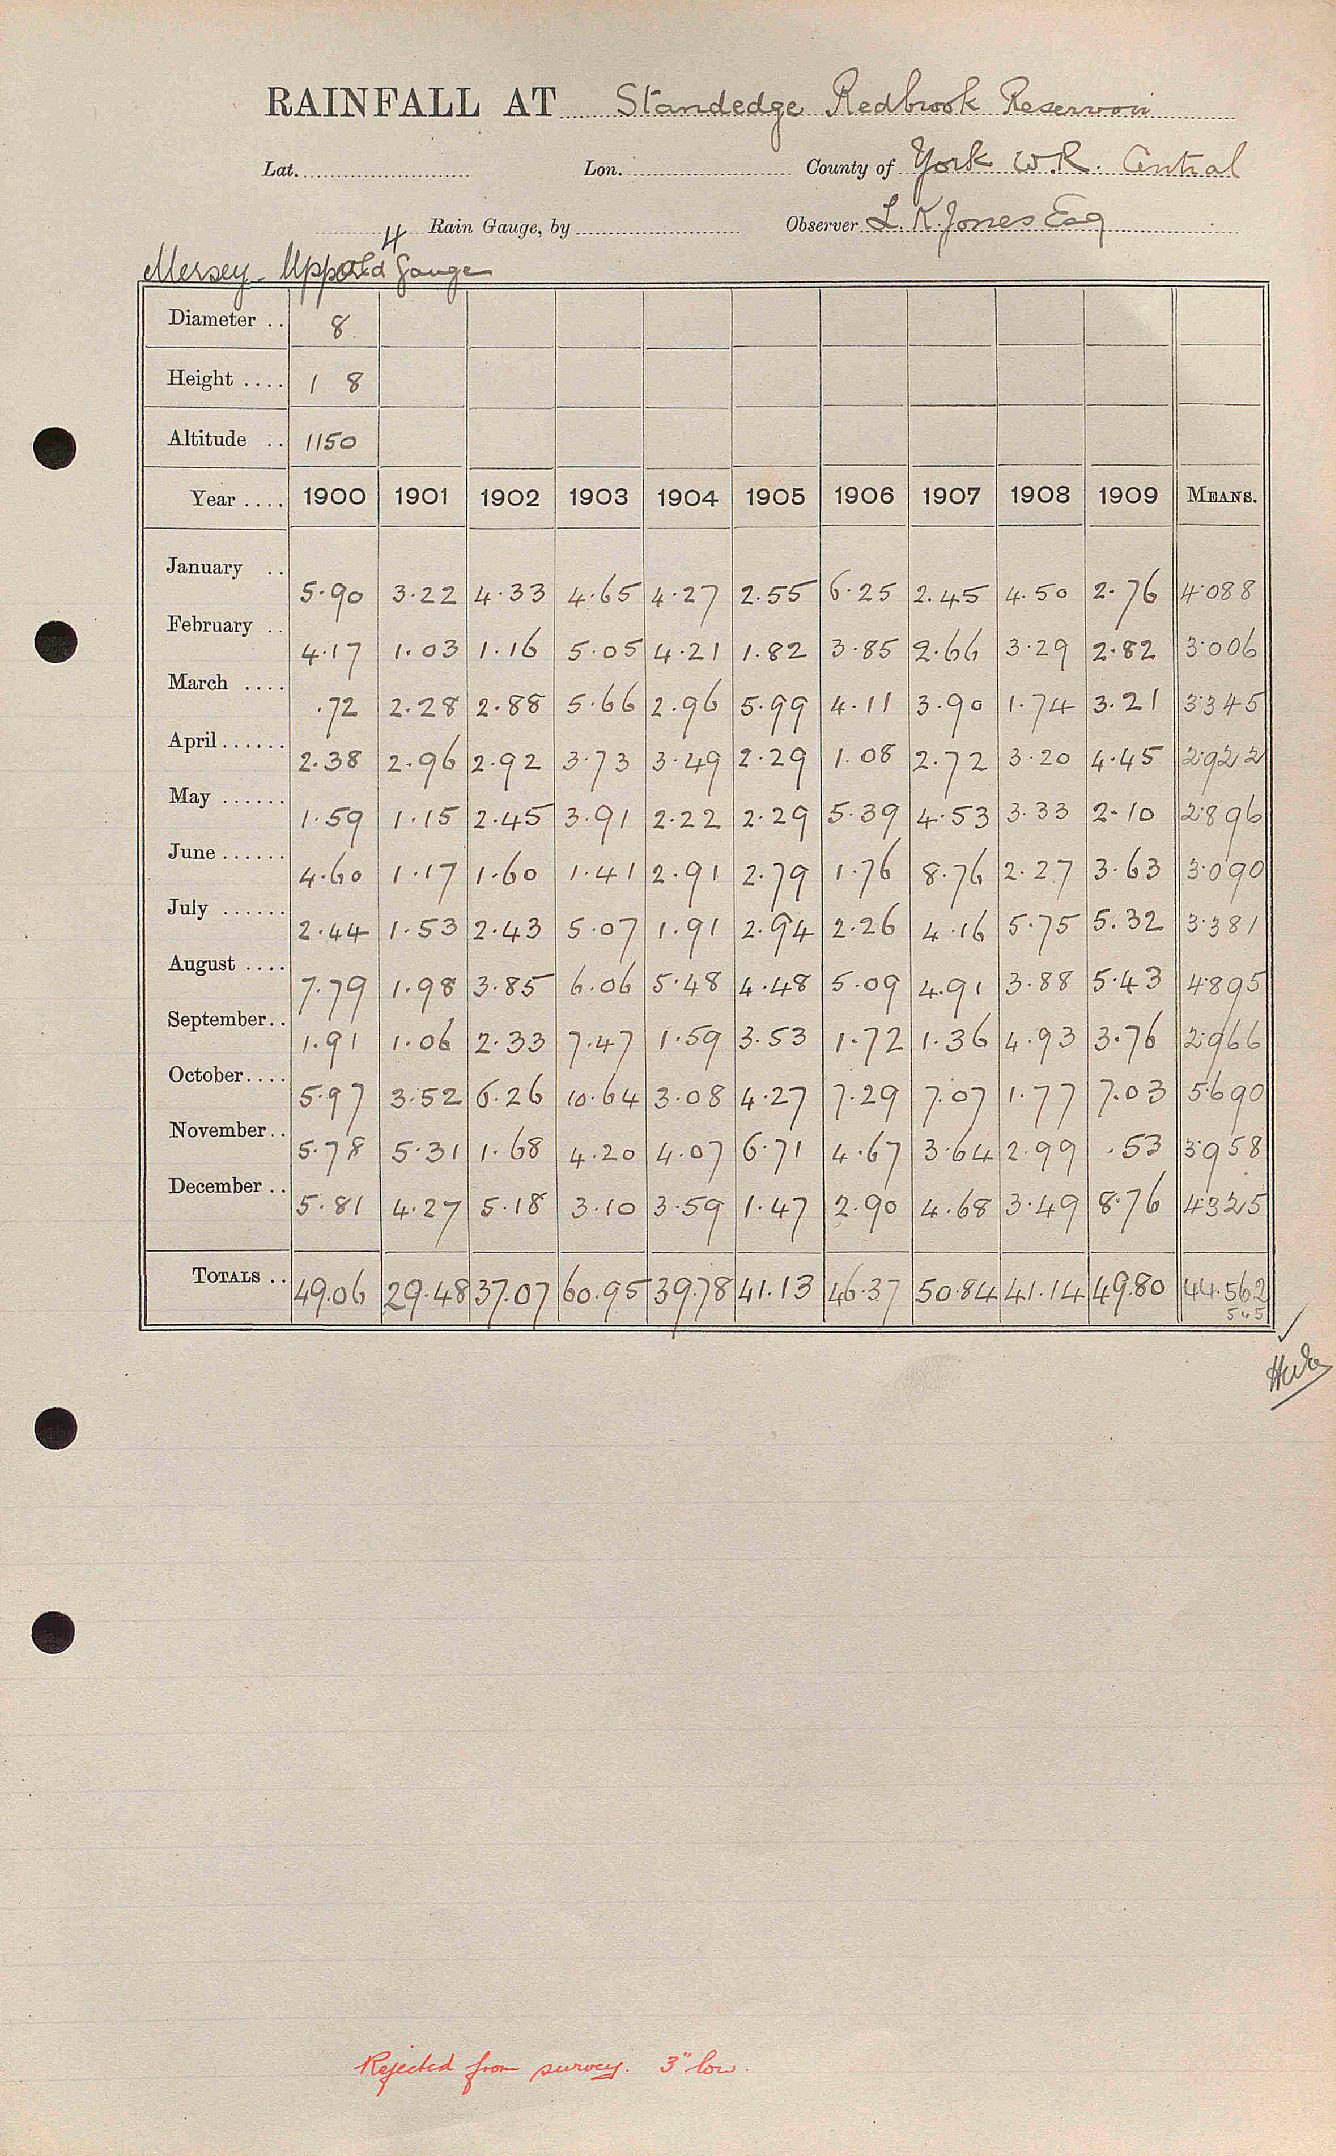 RAINFALL AT Standedge Redbrook Reservoir
Lat. Lon. County of York W.R. Central
4 Rain Gauge, by Observer L. K. Jones Esq
Mersey Old Gauge
Diameter .. 8
Height .... 1 8
Altitude .. 1150
Year .... 1900 1901 1902 1903 1904 1905 1906 1907 1908 1909 MEANS.
January .. 5.90 3.22 4.33 4.65 4.27 2.55 6.25 2.45 4.50 2.76 4.088
February .. 4.17 1.03 1.16 5.05 4.21 1.82 3.85 2.66 3.29 2.82 3.006
March .... .72 2.28 2.88 5.66 2.96 5.99 4.11 3.90 1.74 3.21 3.345
April...... 2.38 2.96 2.92 3.73 3.49 2.29 1.08 2.72 3.20 4.45 2.922
May ...... 1.59 1.15 2.45 3.91 2.22 2.29 5.39 4.53 3.33 2.10 2.896
June...... 4.60 1.17 1.60 1.41 2.91 2.79 1.76 8.76 2.27 3.63 3.090
July ...... 2.44 1.53 2.43 5.07 1.91 2.94 2.26 4.16 5.75 5.32 3.381
August .... 7.79 1.98 3.85 6.06 5.48 4.48 5.09 4.91 3.88 5.43 4.895
September.. 1.91 1.06 2.33 7.47 1.59 3.53 1.72 1.36 4.93 3.76 2.966
October.... 5.97 3.52 6.26 10.64 3.08 4.27 7.29 7.07 1.77 7.03 5.690
November.. 5.78 5.31 1.68 4.20 4.07 6.71 4.67 3.64 2.99 .53 3.958
December .. 5.81 4.27 5.18 3.10 3.59 1.47 2.90 4.68 3.49 8.76 4.325
TOTALS .. 49.06 29.48 37.07 60.95 39.78 41.13 46.37 50.84 41.14 49.80 44.562
545
Rejected from survey. 3" low.